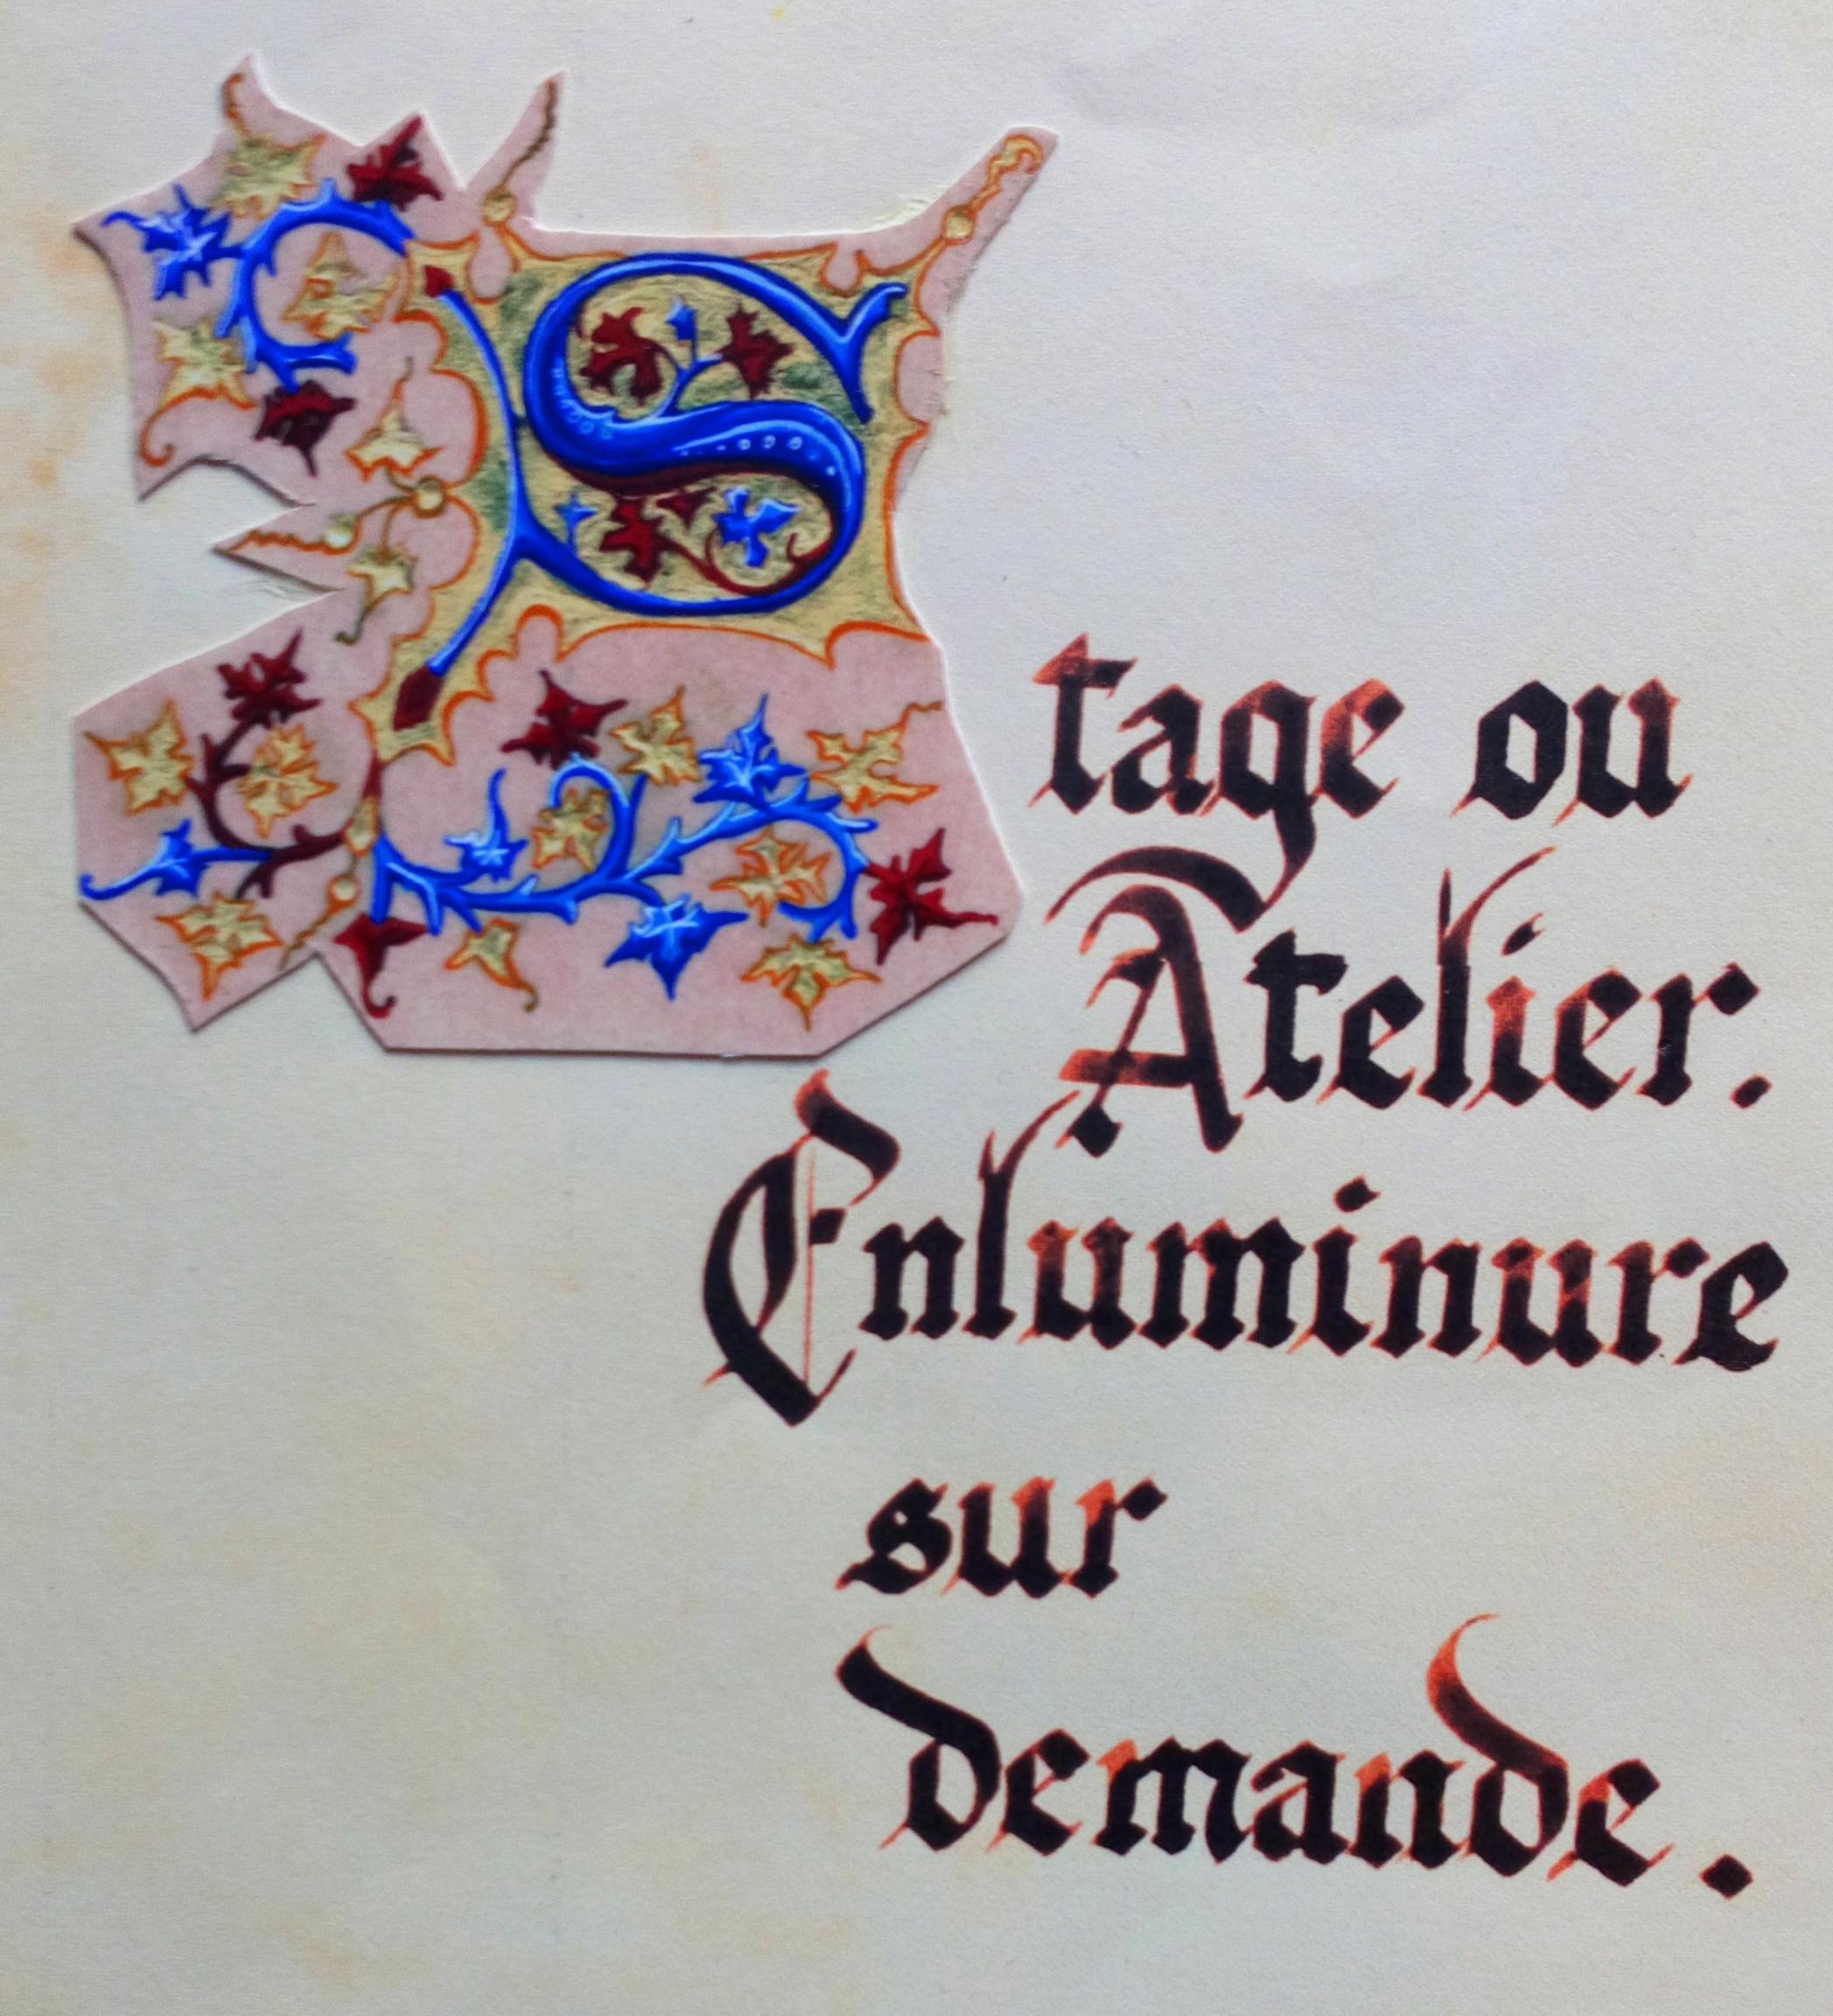 Stage ou
Atelier.
Enluminure
sur
demande.